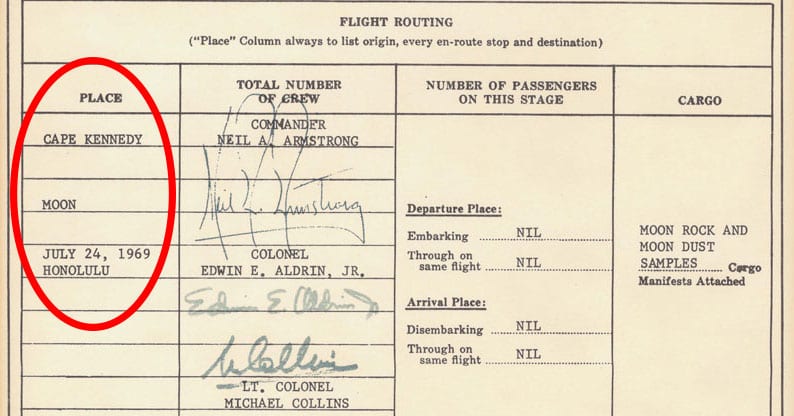 FLIGHT ROUTING
("Place" Column always to list origin, every en-route stop and destination)
PLACE
TOTAL NUMBER
OF CREW
NUMBER OF PASSENGERS
ON THIS STAGE
CARGO
CAPE KENNEDY
MOON
JULY 24, 1969
HONOLULU
COMMANDER
NEIL A. ARMSTRONG
Neil A. Armstrong
COLONEL
EDWIN E. ALDRIN, JR.
Edwin E. Aldrin Jr
M Collins
LT. COLONEL
MICHAEL COLLINS
Departure Place:
Embarking NIL
Through on
same flight NIL
Arrival Place:
Disembarking NIL
Through on
same flight NIL
MOON ROCK AND
MOON DUST
SAMPLES Cargo
Manifests Attached